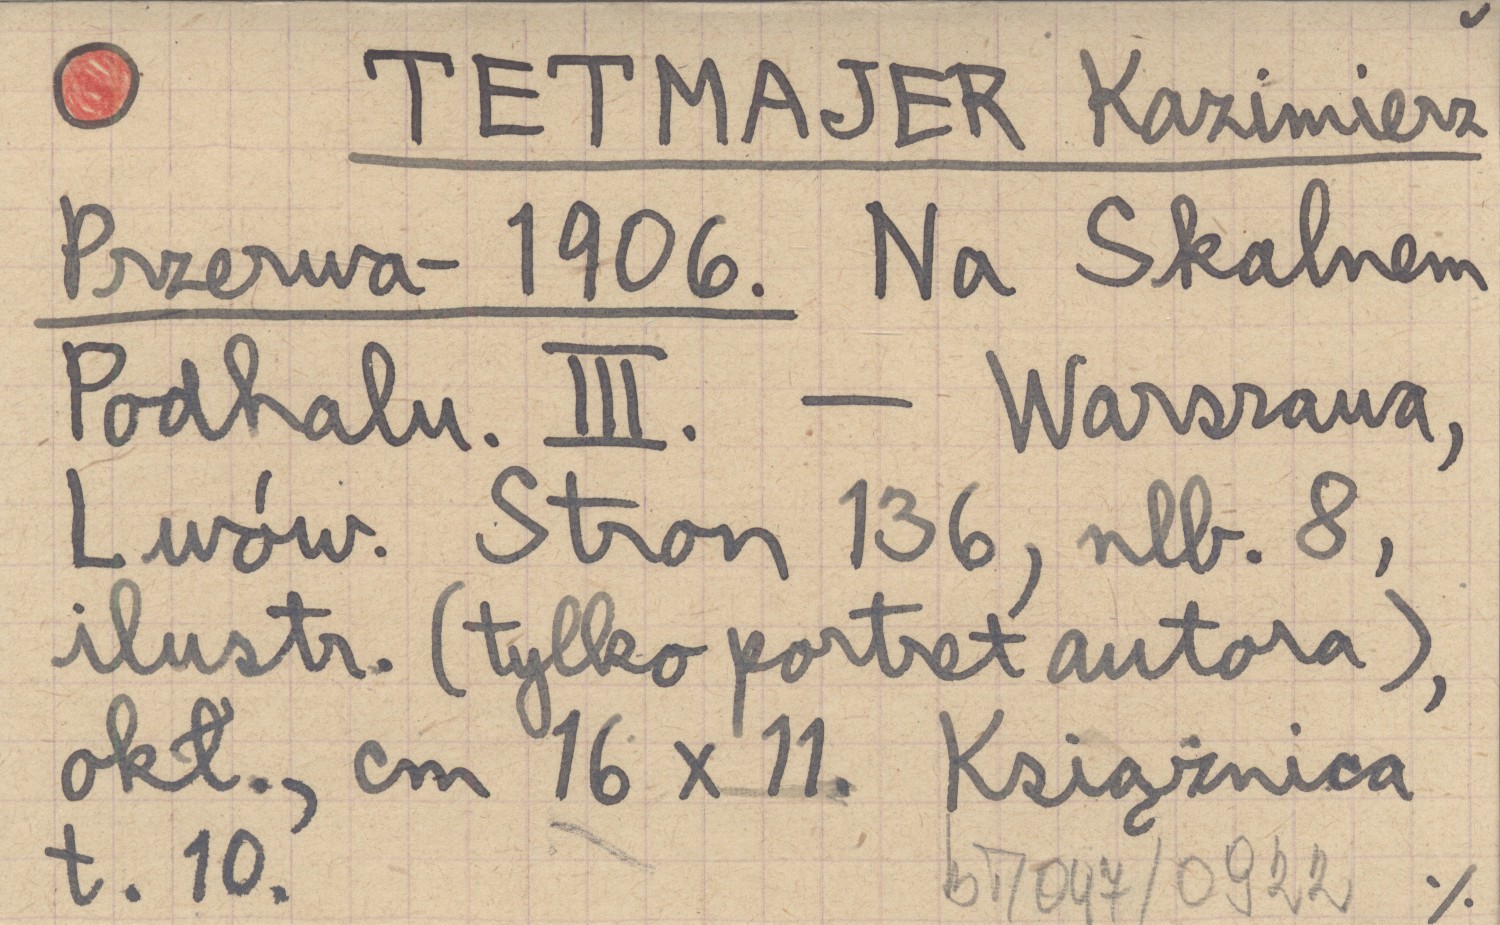 TETMAJER Kazimierz
Przerwa- 1906. Na Skalnem
Podhalu. III. — Warszawa,
Lwów. Stron 136, nlb. 8,
ilustr. (tylko portret autora),
okł., cm 16 x 11. Książnica
t. 10.
047/0922 ·/.